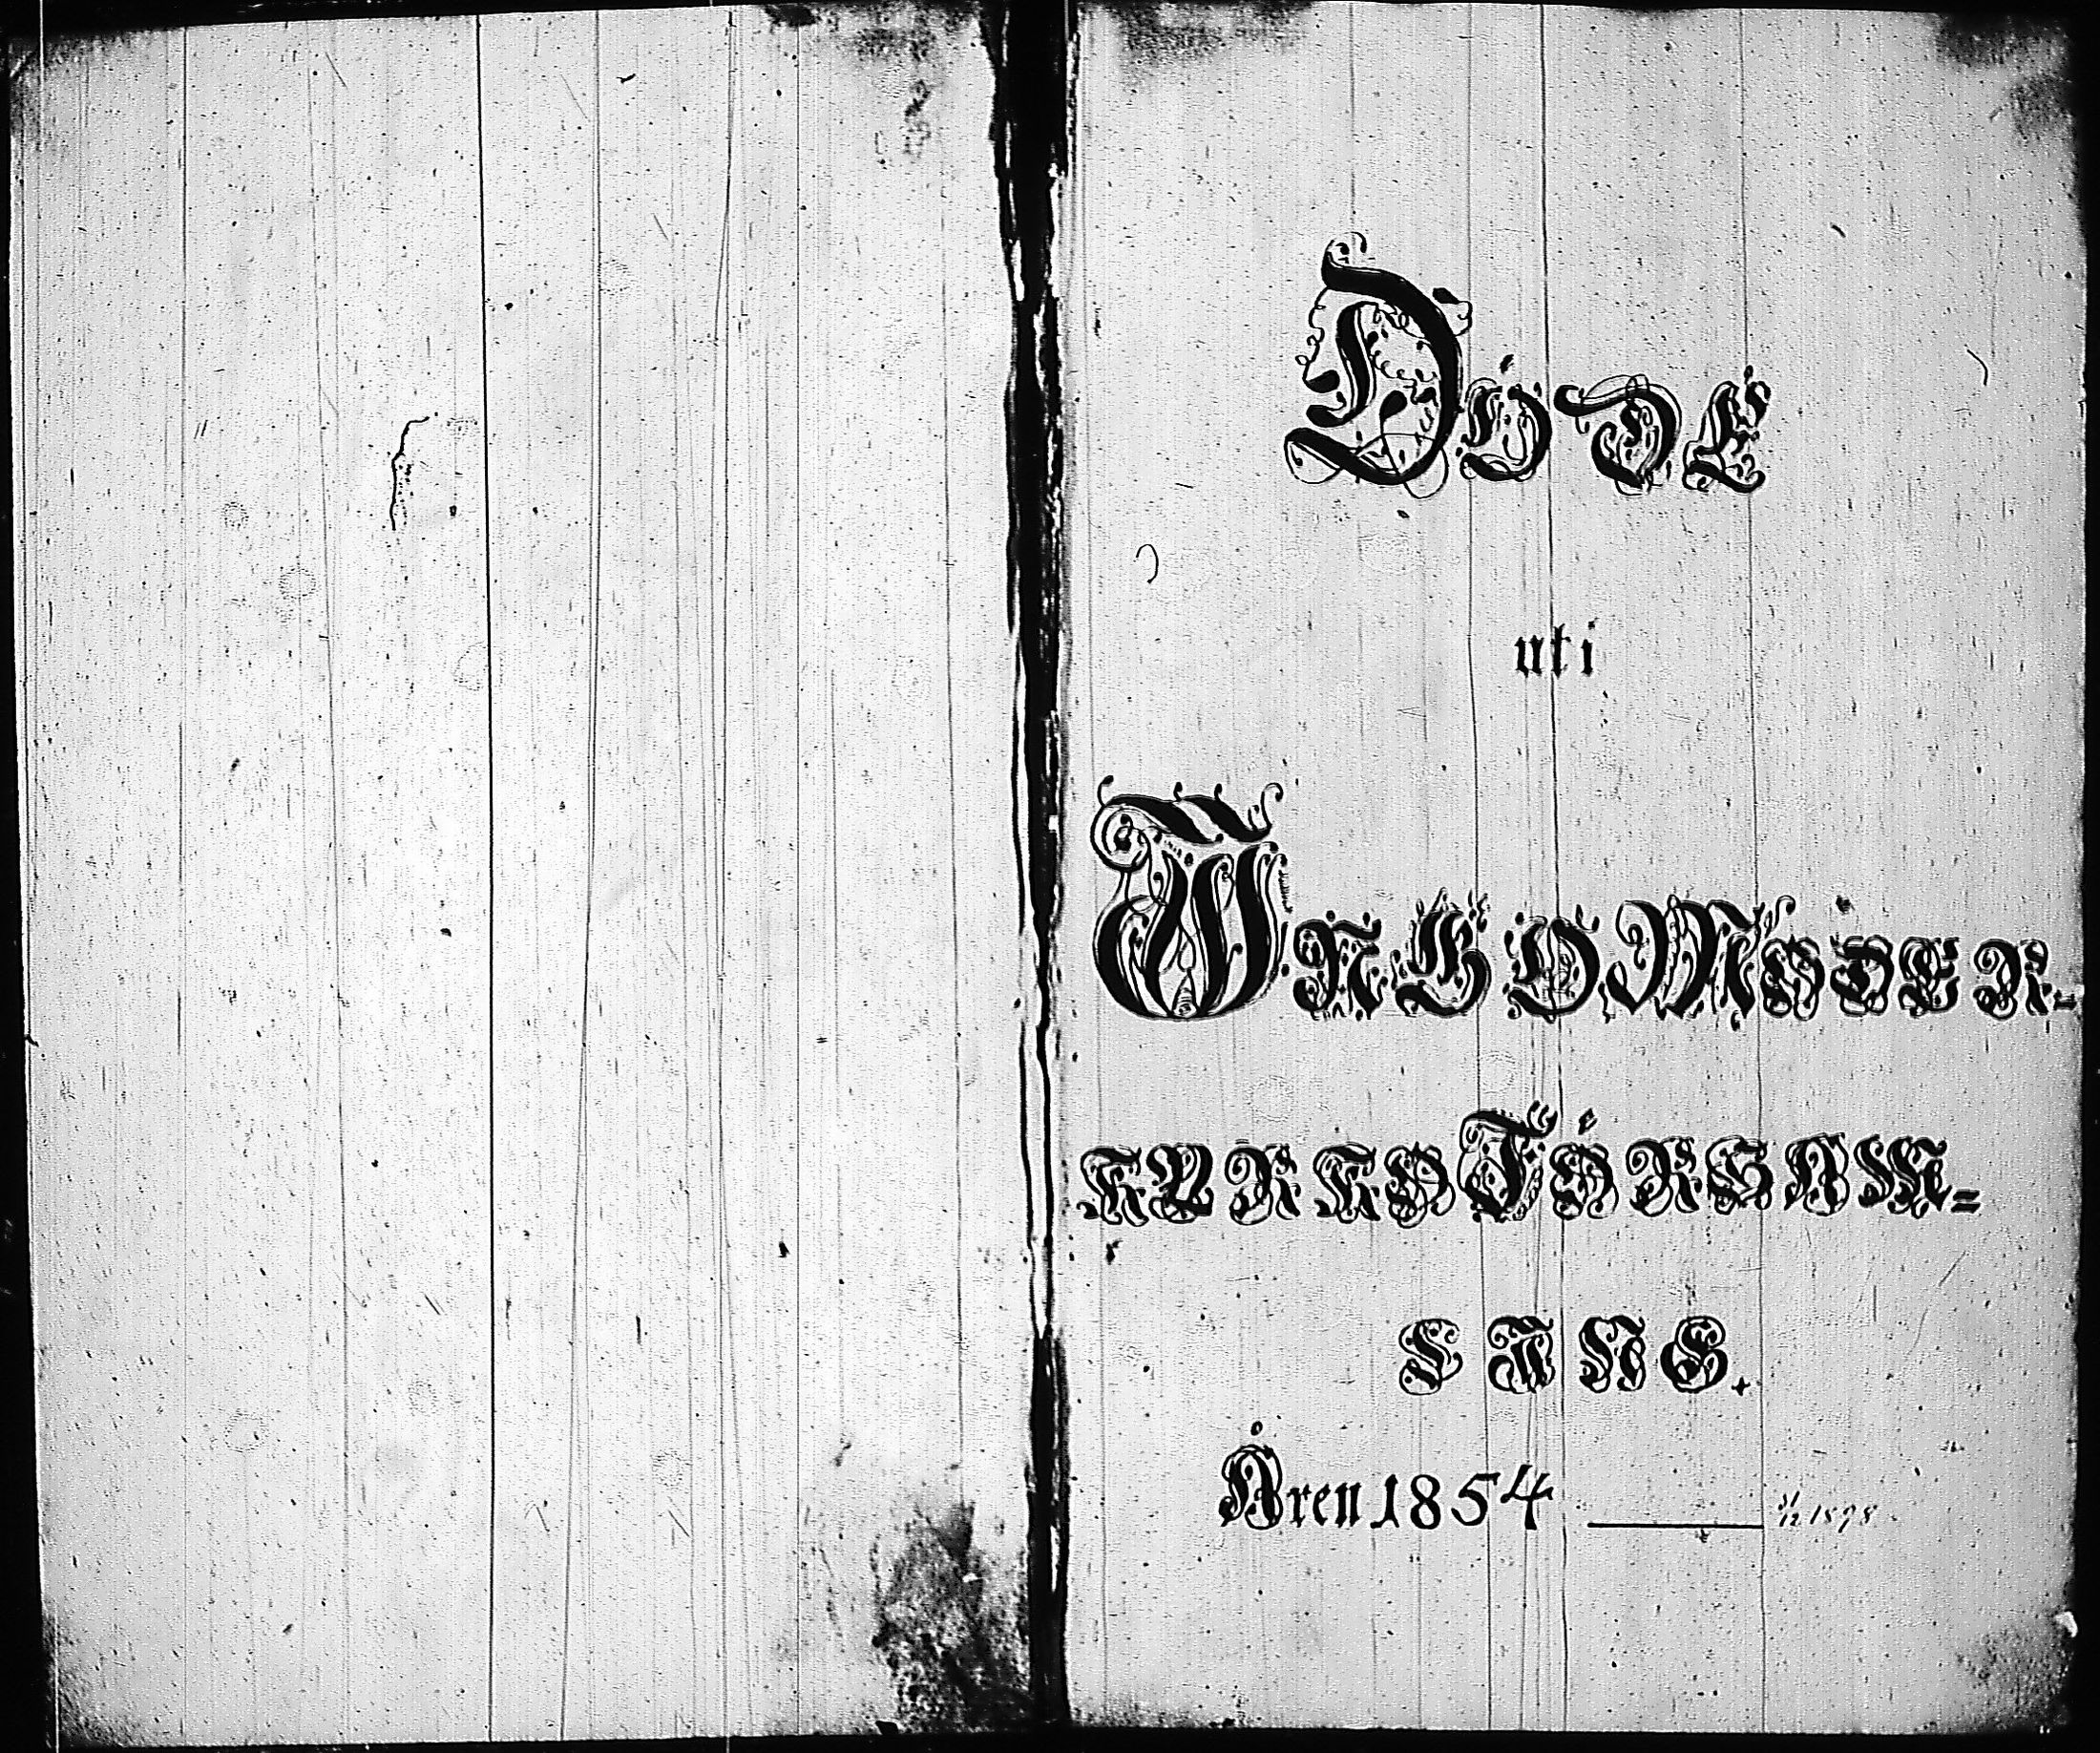 Döde
uti
Moder-
kyrkoFörsam=
ling.
Åren 1854 ——— 31/12 1898